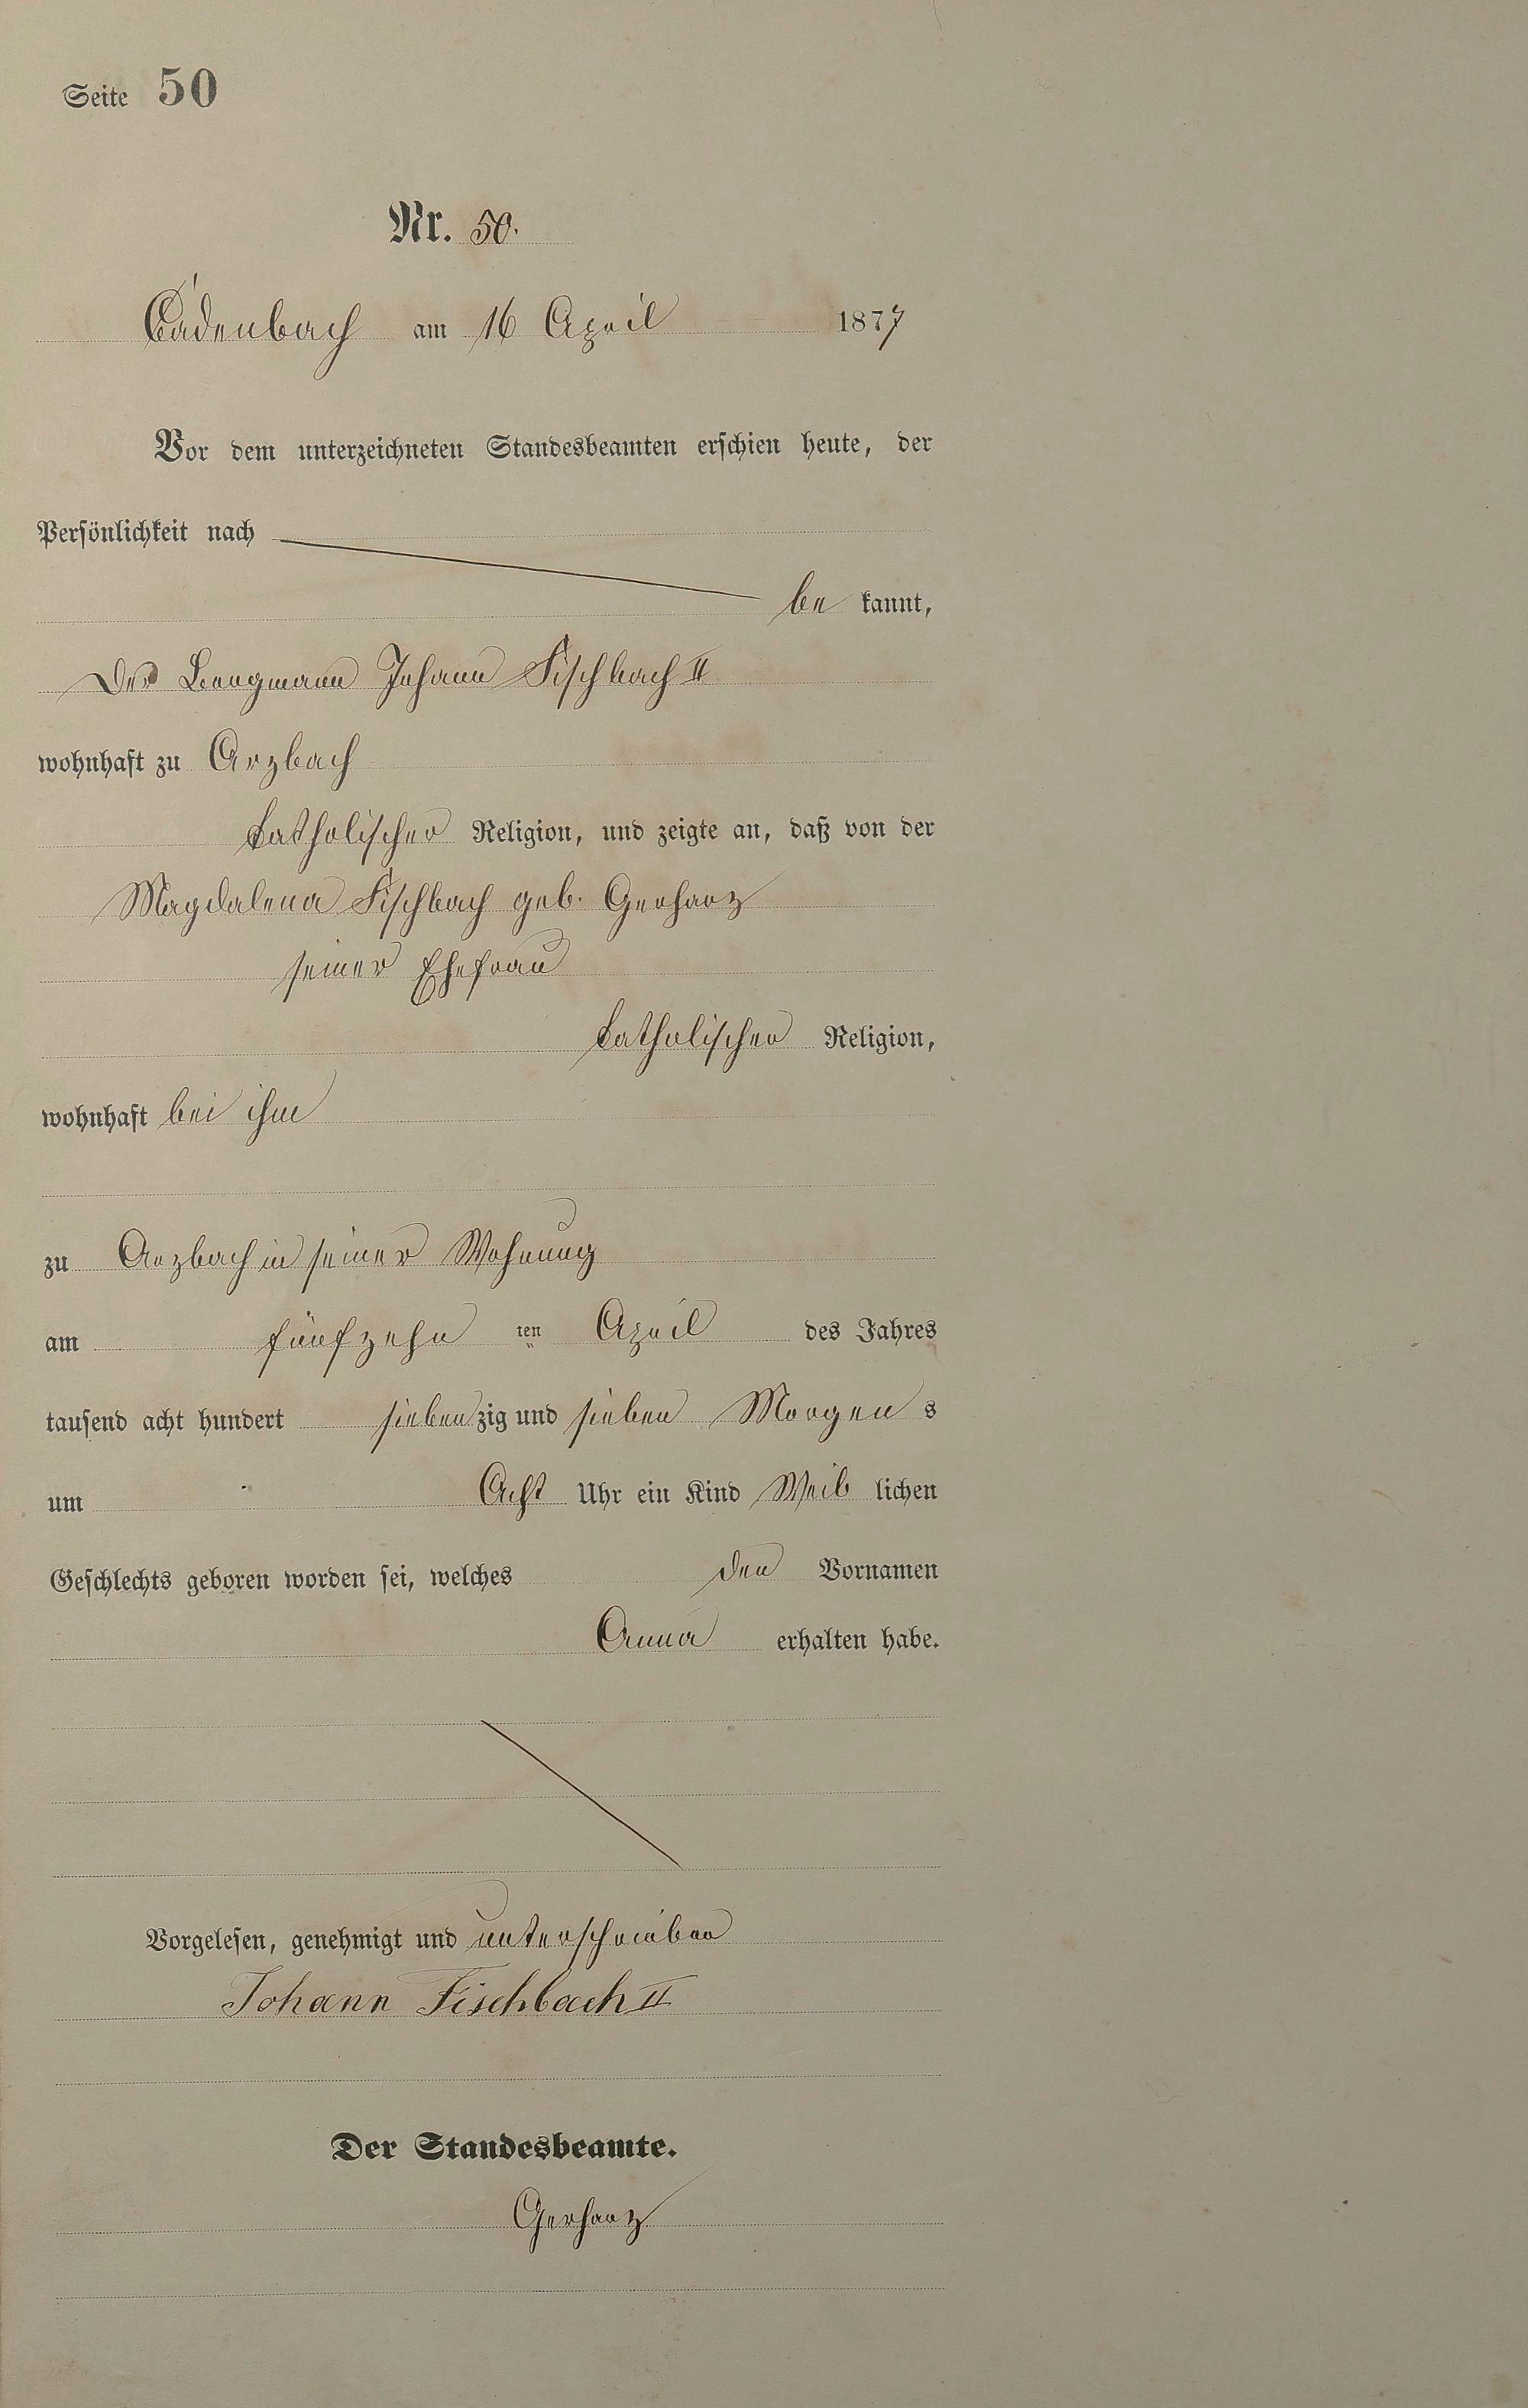 Seite 50
Nr. 50.
Cadenbach am 16 April 1877
Vor dem unterzeichneten Standesbeamten erschien heute, der
Persönlichkeit nach
be kannt,
Der Bergmann Johann Fischbach II
wohnhaft zu Arzbach
katholischer Religion, und zeigte an, daß von der
Magdalena Fischbach geb. Gerharz
seiner Ehefrau
katholischer Religion,
wohnhaft bei ihm
zu Arzbach in seiner Wohnung
am fünfzehn ten April des Jahres
tausend acht hundert siebenzig und sieben Morgen s
um Acht Uhr ein Kind Weib lichen
Geschlechts geboren worden sei, welches den Vornamen
Anna erhalten habe.
Vorgelesen, genehmigt und unterschrieben
Johann Fischbach II
Der Standesbeamte.
Gerharz